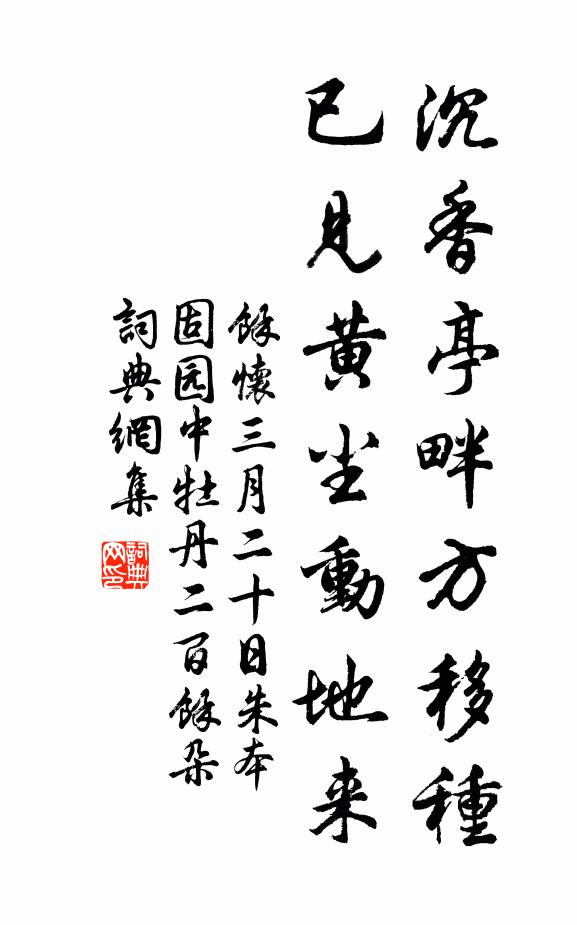 沉香亭畔方移種
已見黃尘動地来
餘懷三月二十日朱本
固园中牡丹二百餘朵
詞典網集
詞典网印